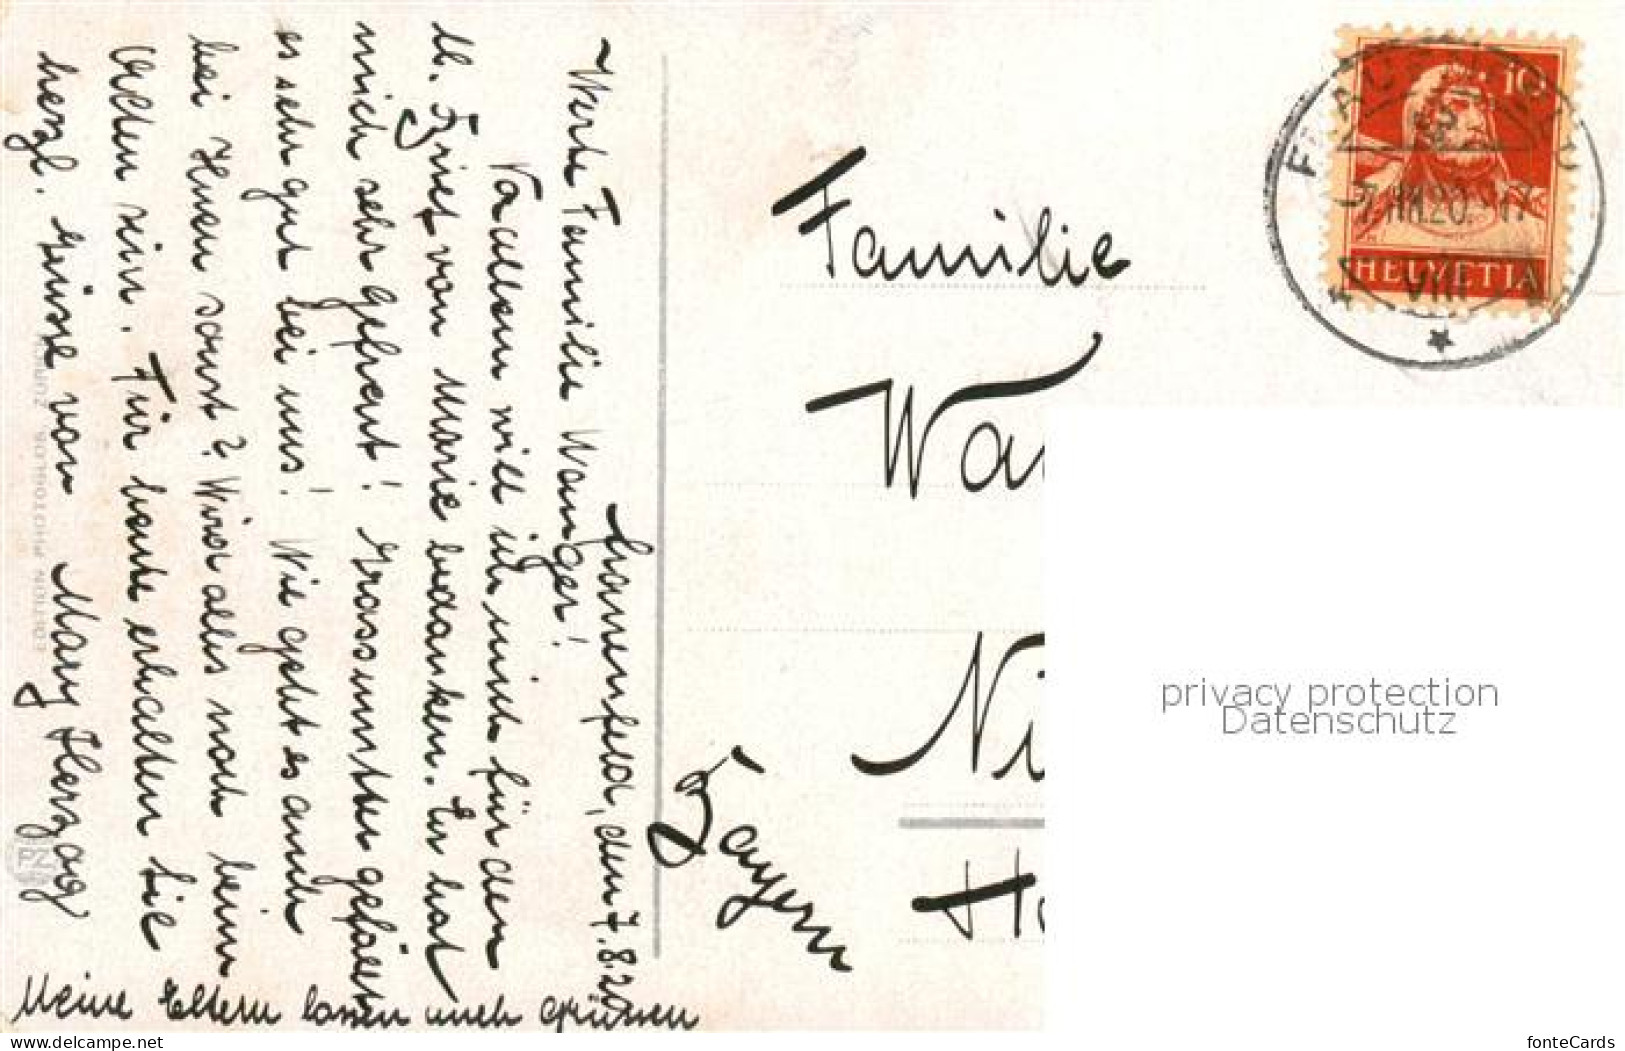 Frauenfeld, den 7.8.20
Werte Familie Wanger!
Vor allem will ich mich für den
lb. Brief von Marie bedanken. Er hat
mich sehr gefreut! Grossmutter gefällt
es sehr gut bei uns! Wie geht es auch
bei Ihnen sonst? Wird alles noch beim
Alten sein. Für heute erhalten Sie
herzl. Grüsse von Mary Herzog
Meine Eltern lassen auch grüssen
Familie
Wa
Ni
Bayern
10
HELVETIA
VIII
PZ
privacy protection
Datenschutz
www.delcampe.net
fonteCards